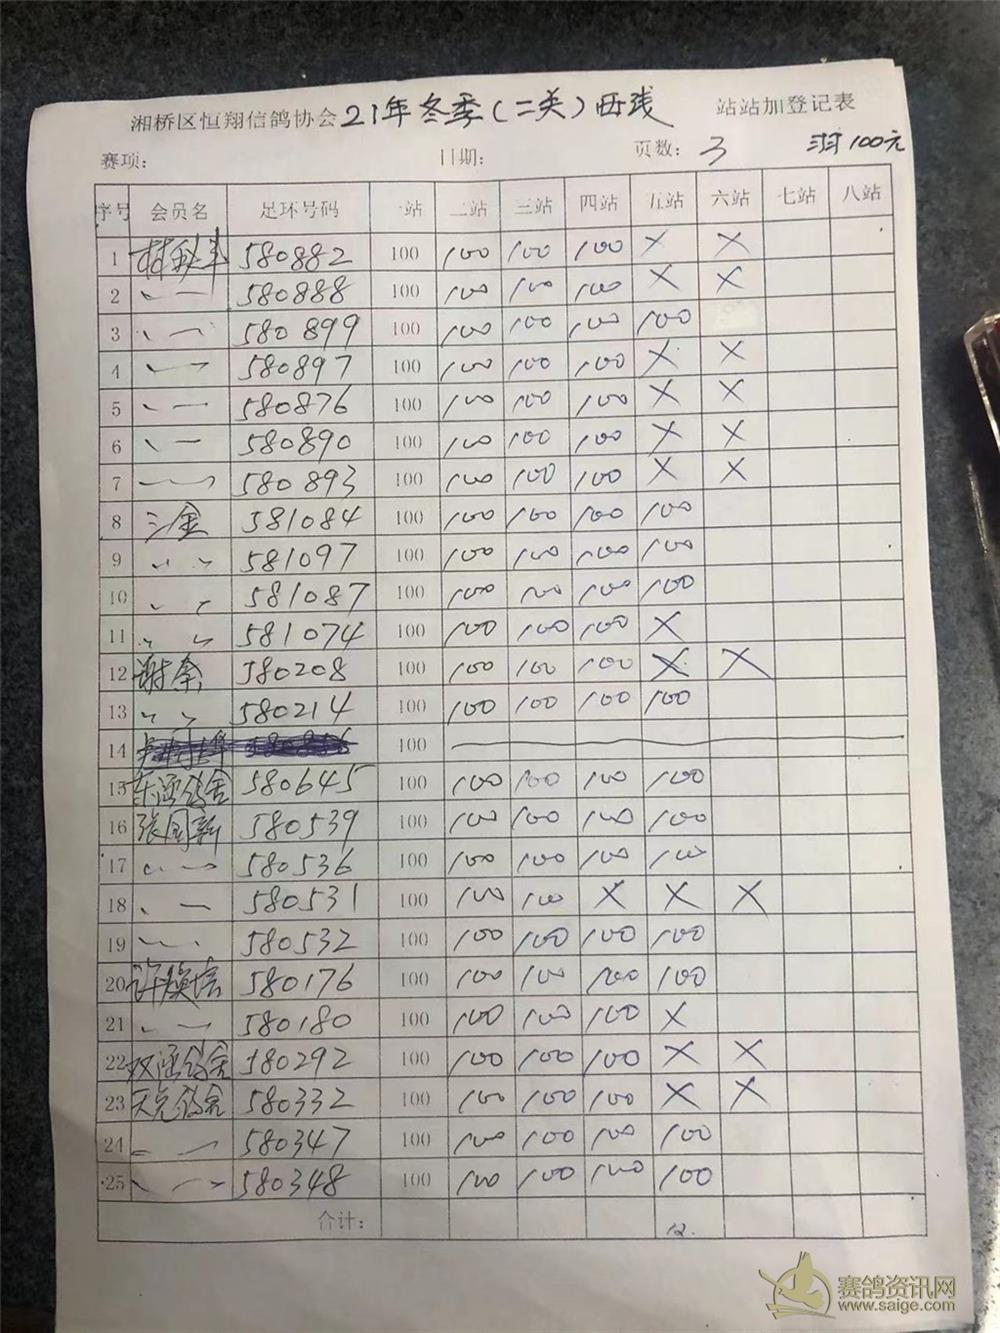 湘桥区恒翔信鸽协会21年冬季(二关)西线 站站加登记表
赛项: 日期: 页数: 3 100元
序号 会员名 足环号码 一站 二站 三站 四站 五站 六站 七站 八站
1 580882 100 100 100 100 X X
2 〃 580888 100 100 100 100 X X
3 〃 580899 100 100 100 100 100
4 〃 580897 100 100 100 100 X X
5 〃 580876 100 100 100 100 X X
6 〃 580890 100 100 100 100 X X
7 〃 580893 100 100 100 100 X X
8 三金 581084 100 100 100 100 100
9 〃 581097 100 100 100 100 100
10 〃 581087 100 100 100 100 100
11 〃 581074 100 100 100 100 X
12 580208 100 100 100 100 X X
13 〃 580214 100 100 100 100 100
14 100
15 580645 100 100 100 100 100
16 张国新 580539 100 100 100 100 100
17 〃 580536 100 100 100 100 100
18 〃 580531 100 100 100 X X X
19 〃 580532 100 100 100 100 100
20 580176 100 100 100 100 100
21 〃 580180 100 100 100 100 X
22 580292 100 100 100 100 X X
23 580332 100 100 100 100 X X
24 〃 580347 100 100 100 100 100
25 〃 580348 100 100 100 100 100
合计: 12.
赛鸽资讯网
www.saige.com